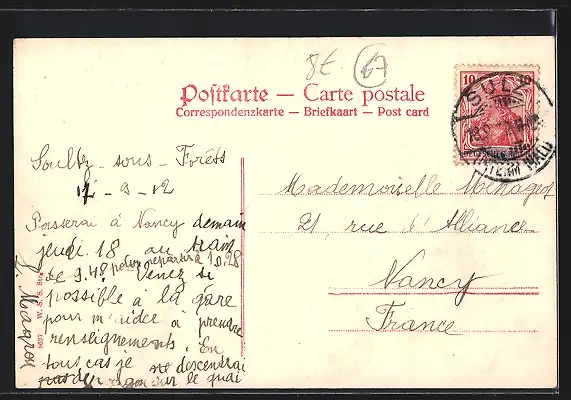 8€ 67
Postkarte — Carte postale
Correspondenzkarte — Briefkaart — Post card
10 10
SULZ
Soultz-sous-Forêts
17-9-12
Passerai à Nancy demain
jeudi 18 au train
de 9.48 pour repartir à 10.28
Venez si
possible à la gare
pour m'aider à prendre
renseignements. En
tous cas je ne descendrai
pas de wagon sur le quai
Mademoiselle
21, rue d'Alliance
Nancy
France